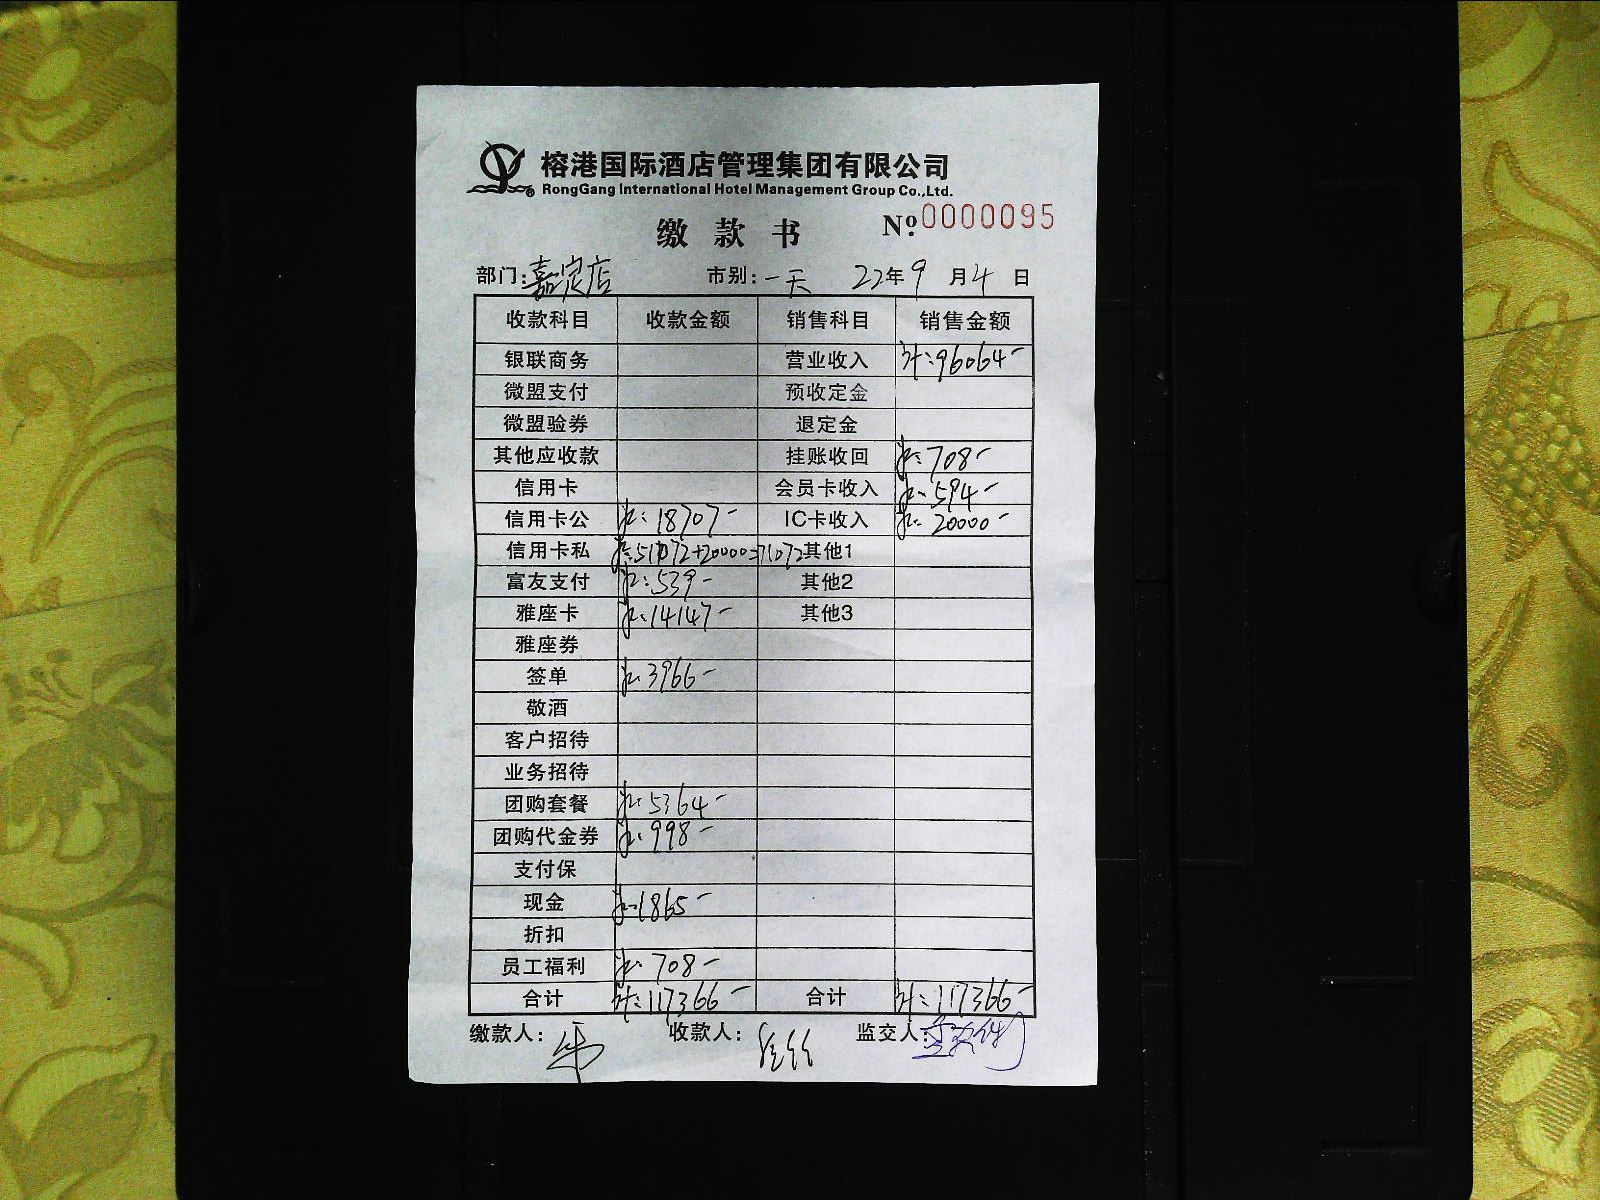 榕港国际酒店管理集团有限公司
RongGang International Hotel Management Group Co.,Ltd.
缴款书 Nº:0000095
部门:嘉定店 市别:一天 22年9月4日
收款科目 收款金额 销售科目 销售金额
银联商务 营业收入 计:96064-
微盟支付 预收定金
微盟验券 退定金
其他应收款 挂账收回 计:708-
信用卡 会员卡收入 计:594-
信用卡公 计:18707- IC卡收入 计:20000-
信用卡私 计:51072+20000=71072 其他1
富友支付 计:539- 其他2
雅座卡 计:14147- 其他3
雅座券
签单 计:3966-
敬酒
客户招待
业务招待
团购套餐 计:5364-
团购代金券 计:998-
支付保
现金 计:1865-
折扣
员工福利 计:708-
合计 计:117366- 合计 计:117366-
缴款人: 收款人: 监交人: